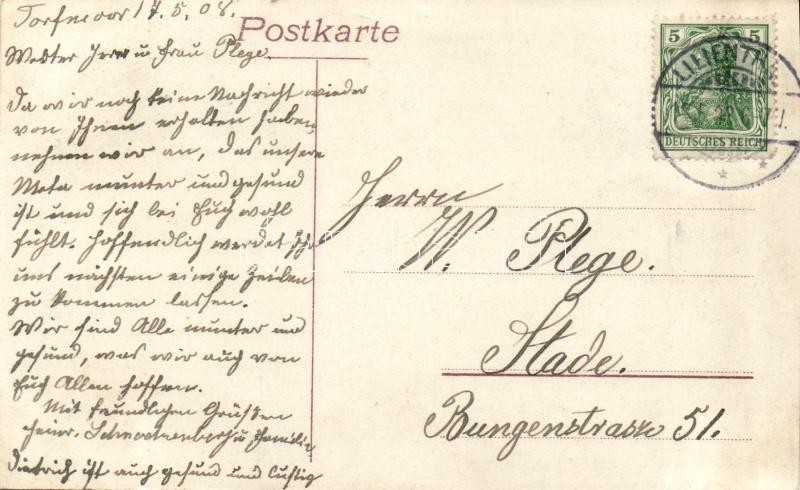 Torfmoor 17.5.08.
Postkarte
Werter Herr u Frau Plege.
Da wir noch keine Nachricht wieder
von Ihnen erhalten haben,
nehmen wir an, das unsere
Meta munter und gesund
ist und sich bei Euch wohl
fühlt. Hoffendlich werdet Ihr
uns nächsten einige Zeilen
zu kommen lassen.
Wir sind Alle munter und
gesund, was wir auch von
Euch Allen hoffen.
Mit freundlichen Grüssen
Heinr. u Familie
Dietrich ist auch gesund und lustig
5 5
DEUTSCHES REICH
Herrn
W. Plege.
Stade.
Bungenstrasse 51.